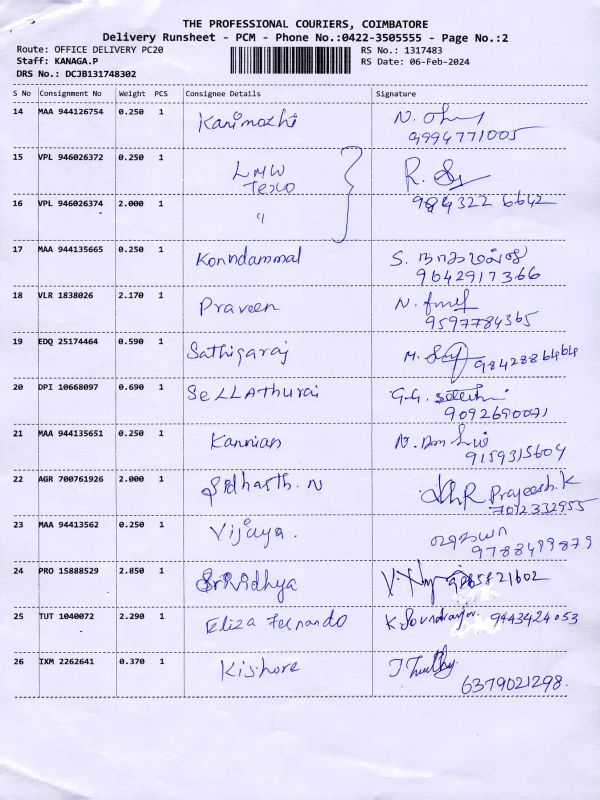 THE PROFESSIONAL COURIERS, COIMBATORE
Delivery Runsheet - PCM - Phone No.:0422-3505555 - Page No.:2
Route: OFFICE DELIVERY PC20 RS No.: 1317483
Staff: KANAGA.P RS Date: 06-Feb-2024
DRS No.: DCJB131748302
S No Consignment No Weight PCS Consignee Details Signature
14 MAA 944126754 0.250 1 Kanimozhi N.
9994771005
15 VPL 946026372 0.250 1 LMW R.
Texo
16 VPL 946026374 2.000 1 " 984322 6642
17 MAA 944135665 0.250 1 Konndammal S.
9642917366
18 VLR 1838026 2.170 1 Praveen N.
9597784365
19 EDQ 25174464 0.590 1 Sathigaraj M. 9842886464
20 DPI 10668097 0.690 1 SeLLAThurai G.G.
9092690071
21 MAA 944135651 0.250 1 Kannian N.
9159315604
22 AGR 700761926 2.000 1 Sidharth. N Prajeesh.K
7012332955
23 MAA 94413562 0.250 1 Vijaya.
9788499879
24 PRO 15888529 2.850 1 SriVidhya V.
25 TUT 1040072 2.290 1 Eliza Fernando K Soundrarajan. 9443424053
26 IXM 2262641 0.370 1 Kishore
6379021298.